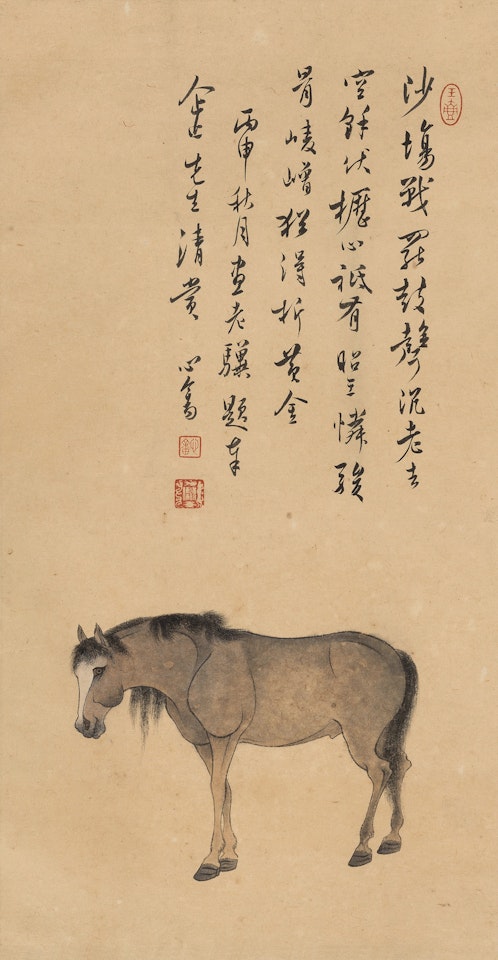 沙場戰罷鼓聲沉老去
空餘伏櫪心祇有昭王憐駿
骨崚嶒猶得折黃金
丙申秋月畫老驥題奉
先生清賞 心畬
玉壺